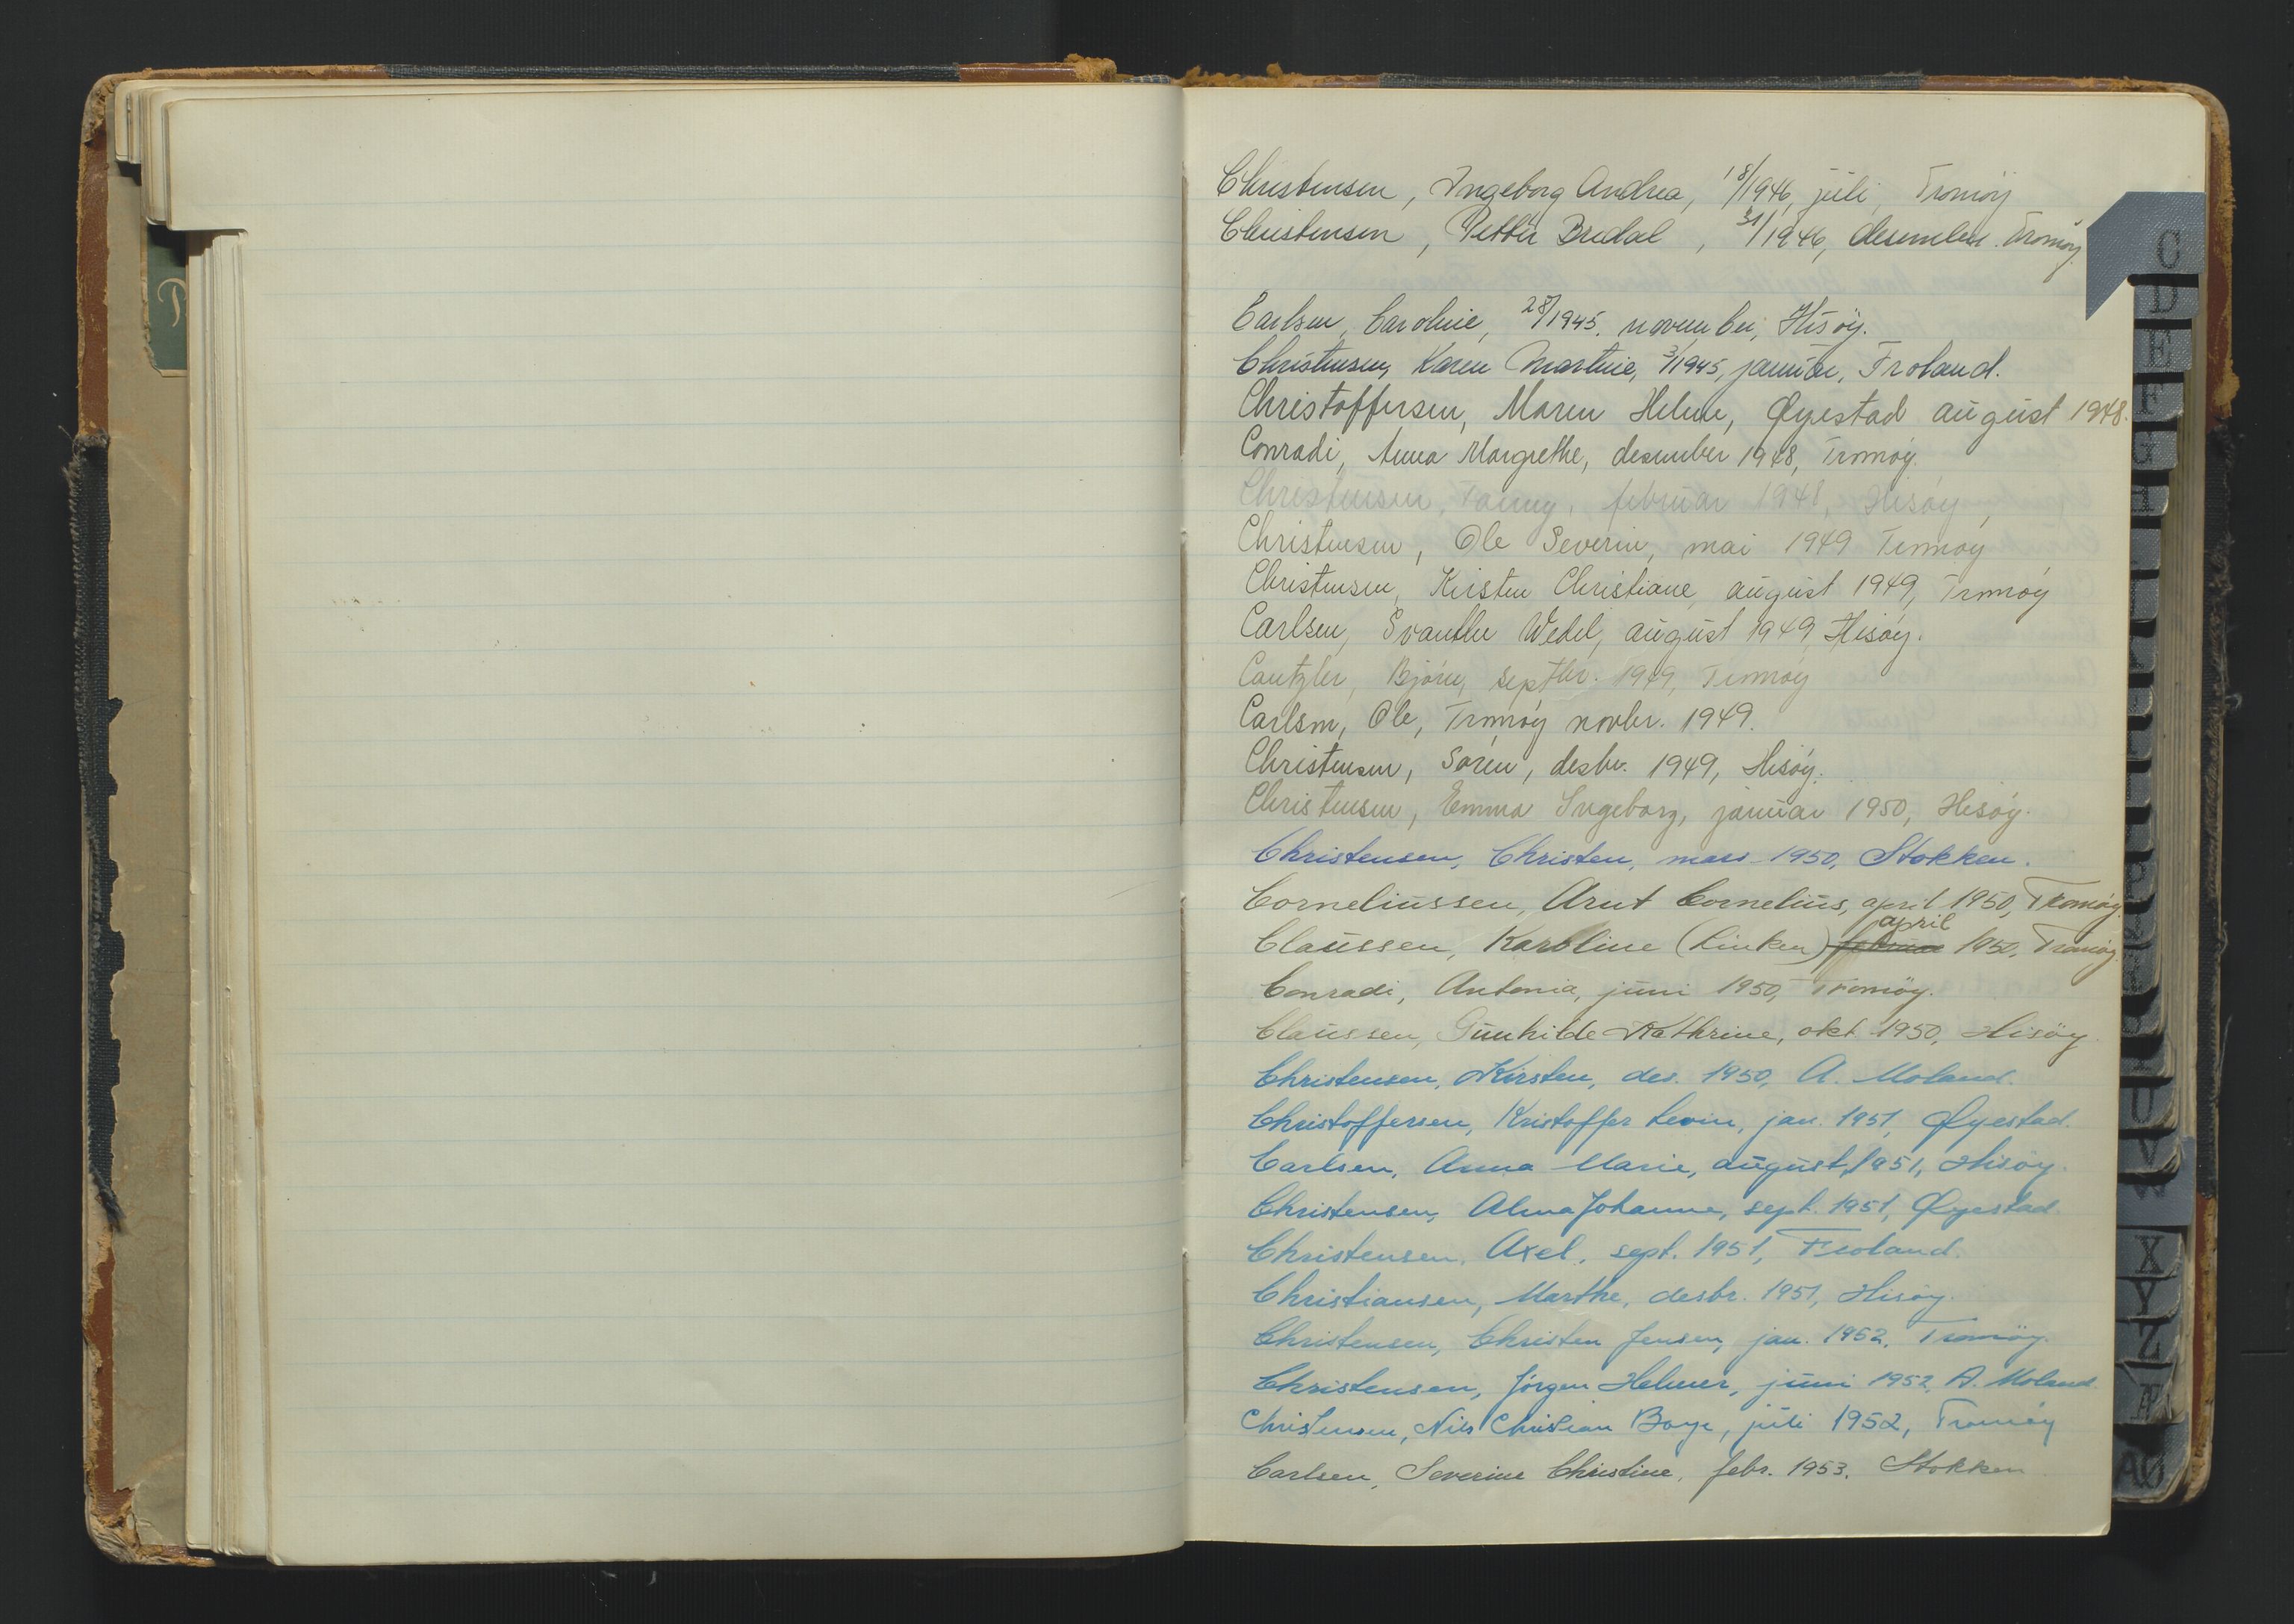 Christensen, Ingeborg Andrea, 18/1946, juli, Tromöy
Christensen, Petter Bredal, 31/1946, desember. Tromöy
Carlsen, Caroline, 28/1945. november, Hisöy.
Christensen, Karen Martine, 3/1945, januar, Froland.
Christoffersen, Maren Helene, Øyestad august 1948.
Conradi, Anna Margrethe, desember 1948, Tromöy.
Christensen, Fanny, februar 1948, Hisöy,
Christensen, Ole Severin, mai 1949 Tromöy
Christensen, Kirsten Christiane, august 1949, Tromöy
Carlsen, Svanthe Wedel, august 1949, Hisöy.
Cantzler, Björn, septbr. 1949, Tromöy
Carlsen, Ole, Tromöy novbr. 1949.
Christensen, Sören, desbr. 1949, Hisöy.
Christensen, Emma Ingeborg, januar 1950, Hisöy.
Christensen, Christen, mars 1950, Stokken.
Corneliussen, Arnt Cornelius, april 1950, Tromöy.
april
Claussen, Karoline (Linken) februar 1950, Tromöy.
Conradi, Antonia, juni 1950, Tromöy.
Claussen, Gunhilde Kathrine, okt. 1950, Hisöy
Christensen, Kirsten, des. 1950, A. Moland.
Christoffersen, Kristoffer Levin, jan. 1951, Øyestad.
Carlsen, Anna Marie, august 1951, Hisöy.
Christensen, Alma Johanne, sept. 1951, Øyestad.
Christensen, Axel, sept. 1951, Froland.
Christiansen, Marthe, desbr. 1951, Hisöy.
Christensen, Christen Jensen, jan. 1952, Tromöy.
Christensen, Jörgen Helmer, juni 1952, A. Moland
Christensen, Nils Christian Boye, juli 1952, Tromöy
Carlsen, Severine Christine, febr. 1953. Stokken
C
D
E
F
G
H
P
U
V
W
X
Y
Z
Æ
AØ